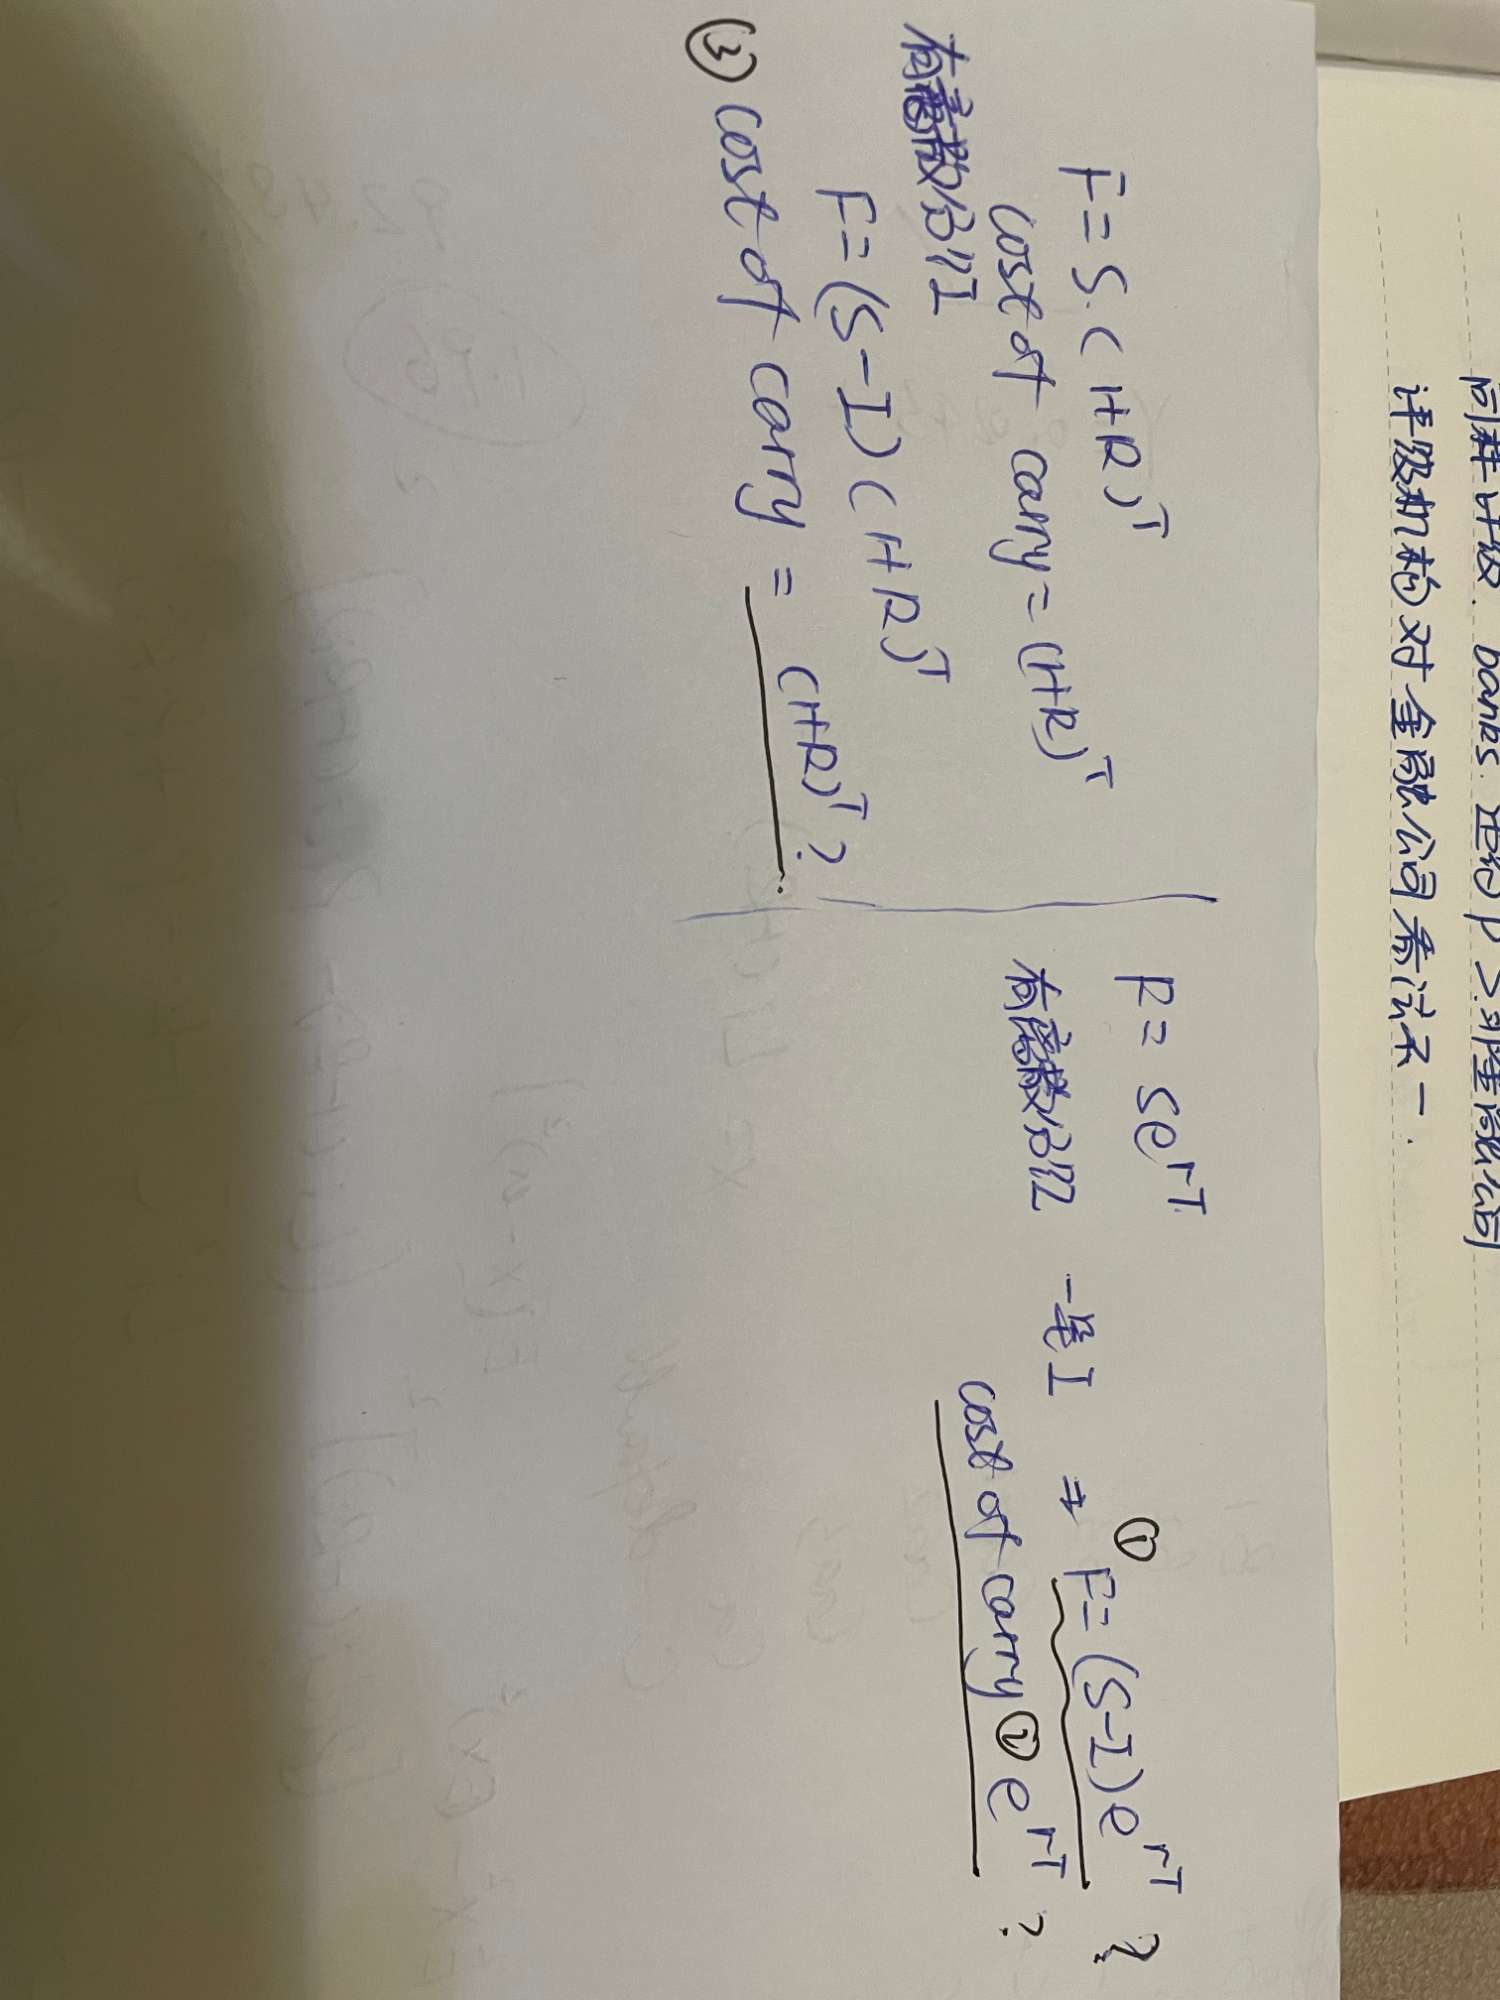 同样评级. banks.
评级机构对金融公司看法不一.
F=S.(1+R)^T
cost of carry=(1+R)^T
有离散分红I
F=(S-I)(1+R)^T
③ cost of carry = (1+R)^T?
F= Se^rT.
有离散分红 一笔I ⇒ ① F=(S-I)e^rT ?
cost of carry ② e^rT ?